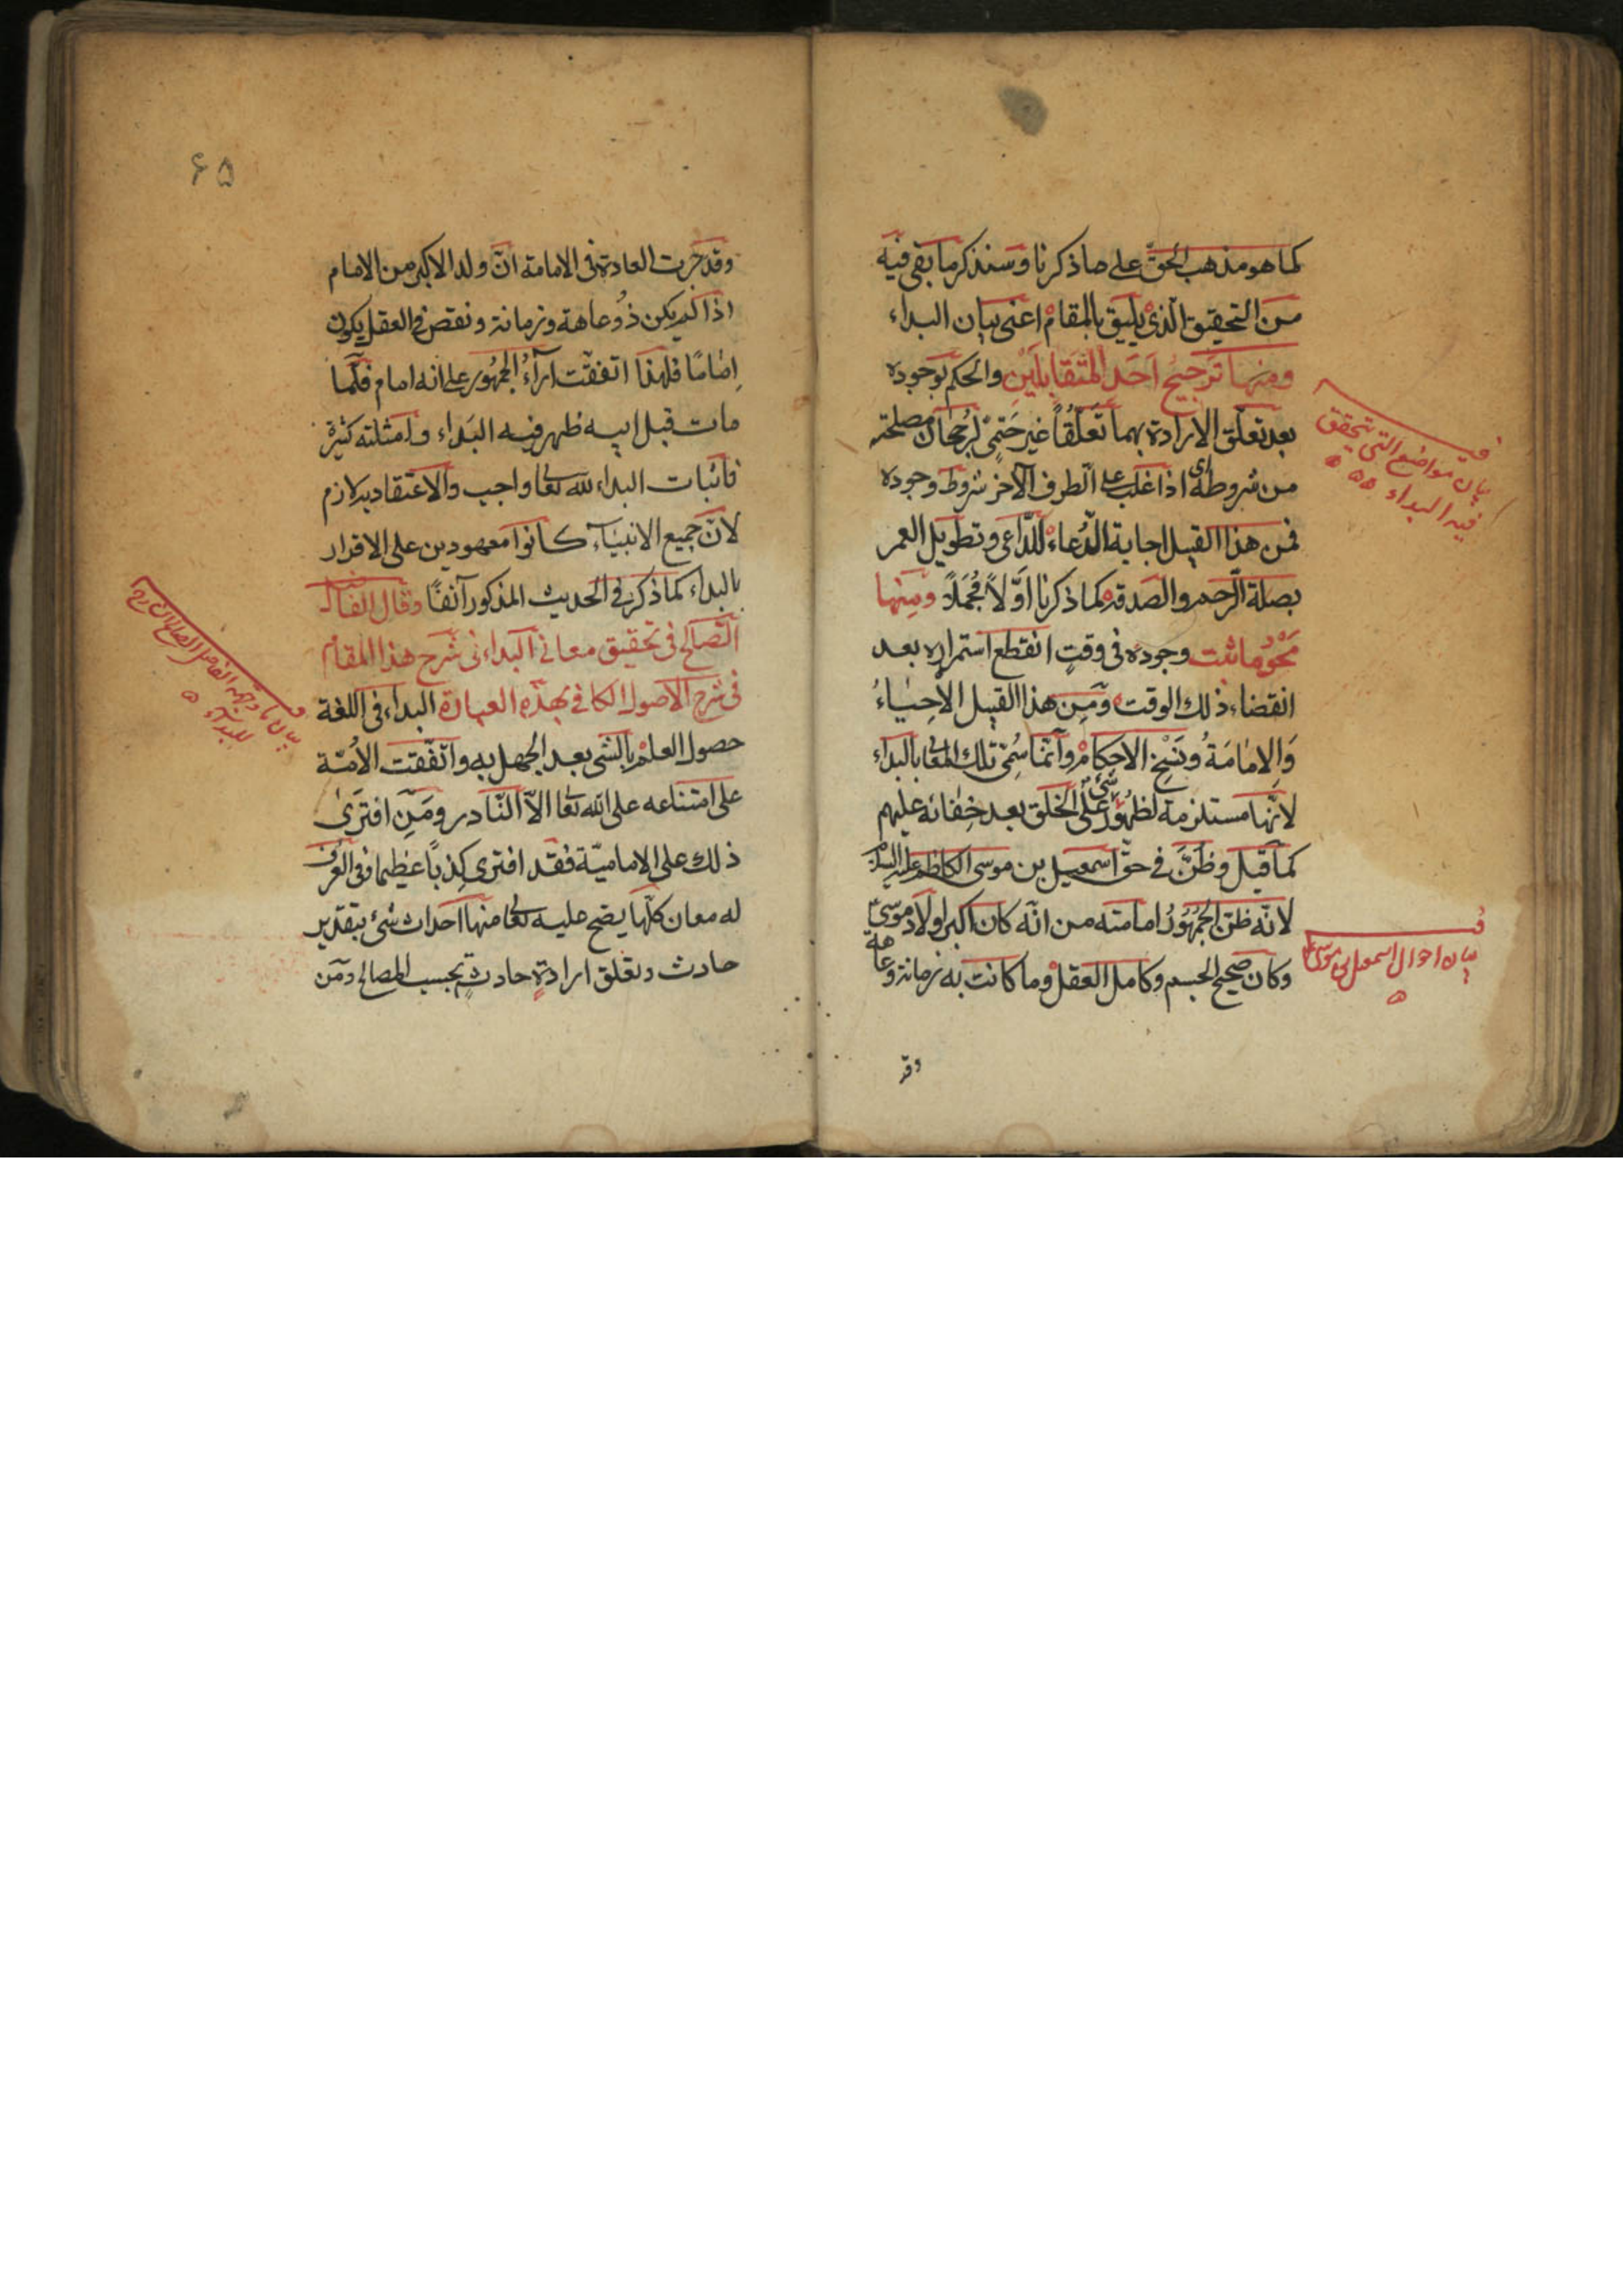 كما هو مذهب الحقّ على ما ذكرنا و سنذكر ما بقى فيه
من التحقيق الّذى يليق بالمقام اعنى بيان البداء
ومنها تَرجيحُ اَحَدِ المتَقابِلَينِ والحكم بوجوده
بعد تعلّق الارادة بهما تَعَلُّقاً غيرَ حَتمىٍّ لرُجحان مصلحته
من شروطه اى اذا غلب على الطرف الآخر شروط وجوده
فمن هذا القبيل اجابة الدّعاء للدّاعى وتطويل العمر
بصلة الرّحم والصدقه كما ذكرنا اوّلاً مُجمَلاً ومِنها
مَحوُ ما ثبت وجوده فى وقتٍ انقطع استمراره بعد
انقضاء ذلك الوقت ومِن هذا القبيل الاحياءُ
وَالاِمامَةُ ونَسْخ الاحكام وانّما سُمّى تلك المعانى بالبداء
لانّها مستلزمة لظهُور شىء على الخلق بعد خِفائه عليهم
كما قيل وظنّ فى حقّ اسمعيل بن موسى الكاظم عليه السلام
لانّه ظنّ الجُمهُورُ امامته من انّه كان اكبر اولاد موسى
وكان صحيح الجسم وكامل العقل وما كانت به زمانة وعاهة
وقد
فى بيان مواضع التى تتحقق
فيه البداء
فى بيان احوال اسمعيل بن موسى ع
٦٥
وقد جرت العادة فى الامامة انّ ولد الاكبر من الامام
اذا لم يكن ذُو عاهة وزمانة ونقص فى العقل يكون
اِمامًا فلهذا اتفقت ارآءُ الجمهُور على انه امام فلمّا
مات قبل ابيه ظهر فيه البَداء وامثلته كثيرة
فاثبات البداء لله تعالى واجب والاعتقاد به لازم
لانّ جميع الانبياء كانوا معهودين على الاقرار
بالبداء كما ذكر فى الحديث المذكور آنفًا وقال الفاضل
الصّالح فى تحقيق معانى البداء فى شرح هذا المقام
فى شرح الاصول الكافى بهذه العبارة البداء فى اللغة
حصول العلم بالشىء بعد الجهل به واتّفقت الأمّة
على امتناعه على الله تعالى الاّ النّادر ومَن افترى
ذلك على الاماميّة فقد افترى كِذباً عظيما وفى العُرف
له معان كلّها يصح عليه تعالى منها احداث شىء بتقدير
حادث وتعلق ارادةٍ حادثةٍ بحسب المصالح ومن